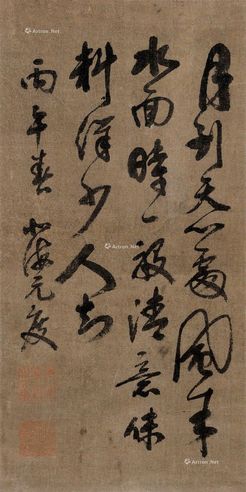 月到天心處風来
水面時一般清意味
料得少人知
丙午春 北海元度
Artron.Net
Artron.Net
Artron.Net